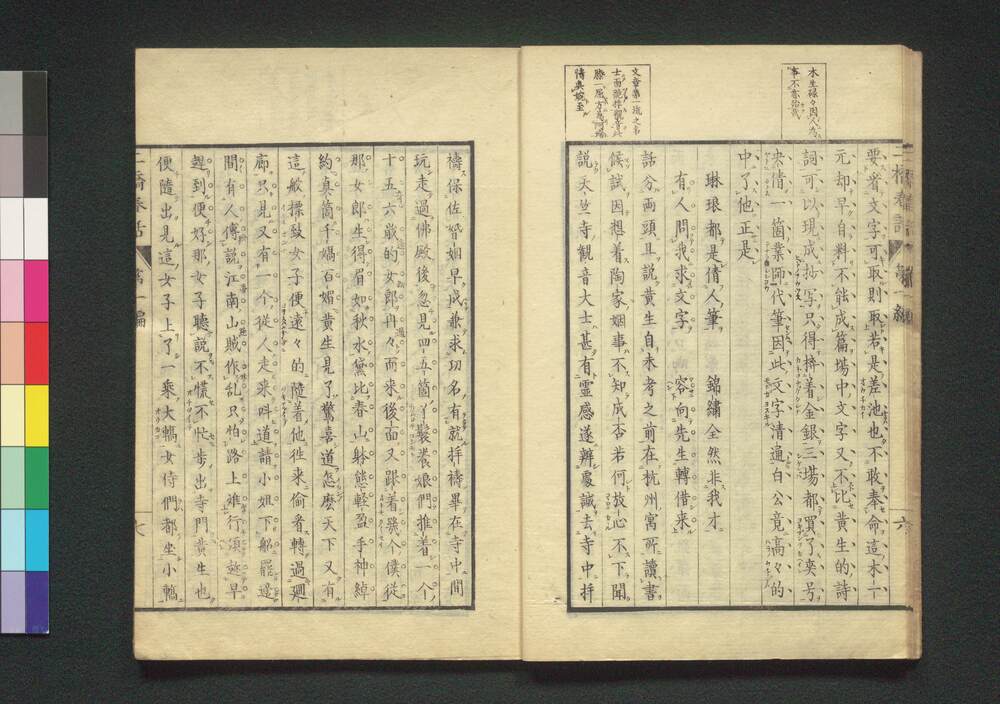 木生碌々因人為
事不亦恥哉
要、着文字可取則取、若是差池、也不敢奉命、這木一
元、却早自料不能成篇、場中文字又不比黃生的詩
詞、可以現成抄写、只得拚着金銀、三場都買了夾号、
央倩一箇業師代筆、因此文字清通、白公竟高々的
中了他、正是
琳琅都是倩人筆　錦繡全然非我才
有人問我求文字　容向先生轉借来
話分両頭、且説黃生自未考之前、在杭州寓所讀書
候試、因想着陶家姻事、不知成否若何、放心不下、聞
説天竺寺観音大士甚有霊感、遂辨虔誠去寺中拝
文章第一流之名
士而
情奥
二橋春話
第一編
六
禱、保佐婚姻早成、兼求功名有就、拝禱畢、在寺中閒
玩、走過佛殿後、忽見四五箇丫鬟養娘們、推着一个
十五六歳的女郎、冉々而来、後面又跟着幾个僕従、
那女郎生得眉如秋水、黛比春山、躰態軽盈、手神綽
約、真箇千嬌百媚、黃生見了驚喜道、怎麼天下又有
這般標致女子、便遠々的隨着他徃来偷看、轉過廻
廊、只見又有一个従人走来呌道、請小姐下船罷、邉
間有人傳説、江南山賊作乱、只怕路上難行、須趂早
趕到便好、那女子聽説、不慌不忙、歩出寺門、黃生也
便隨出、見這女子上了一乗大轎、女侍們都坐小轎、
二橋春話
第一編
七